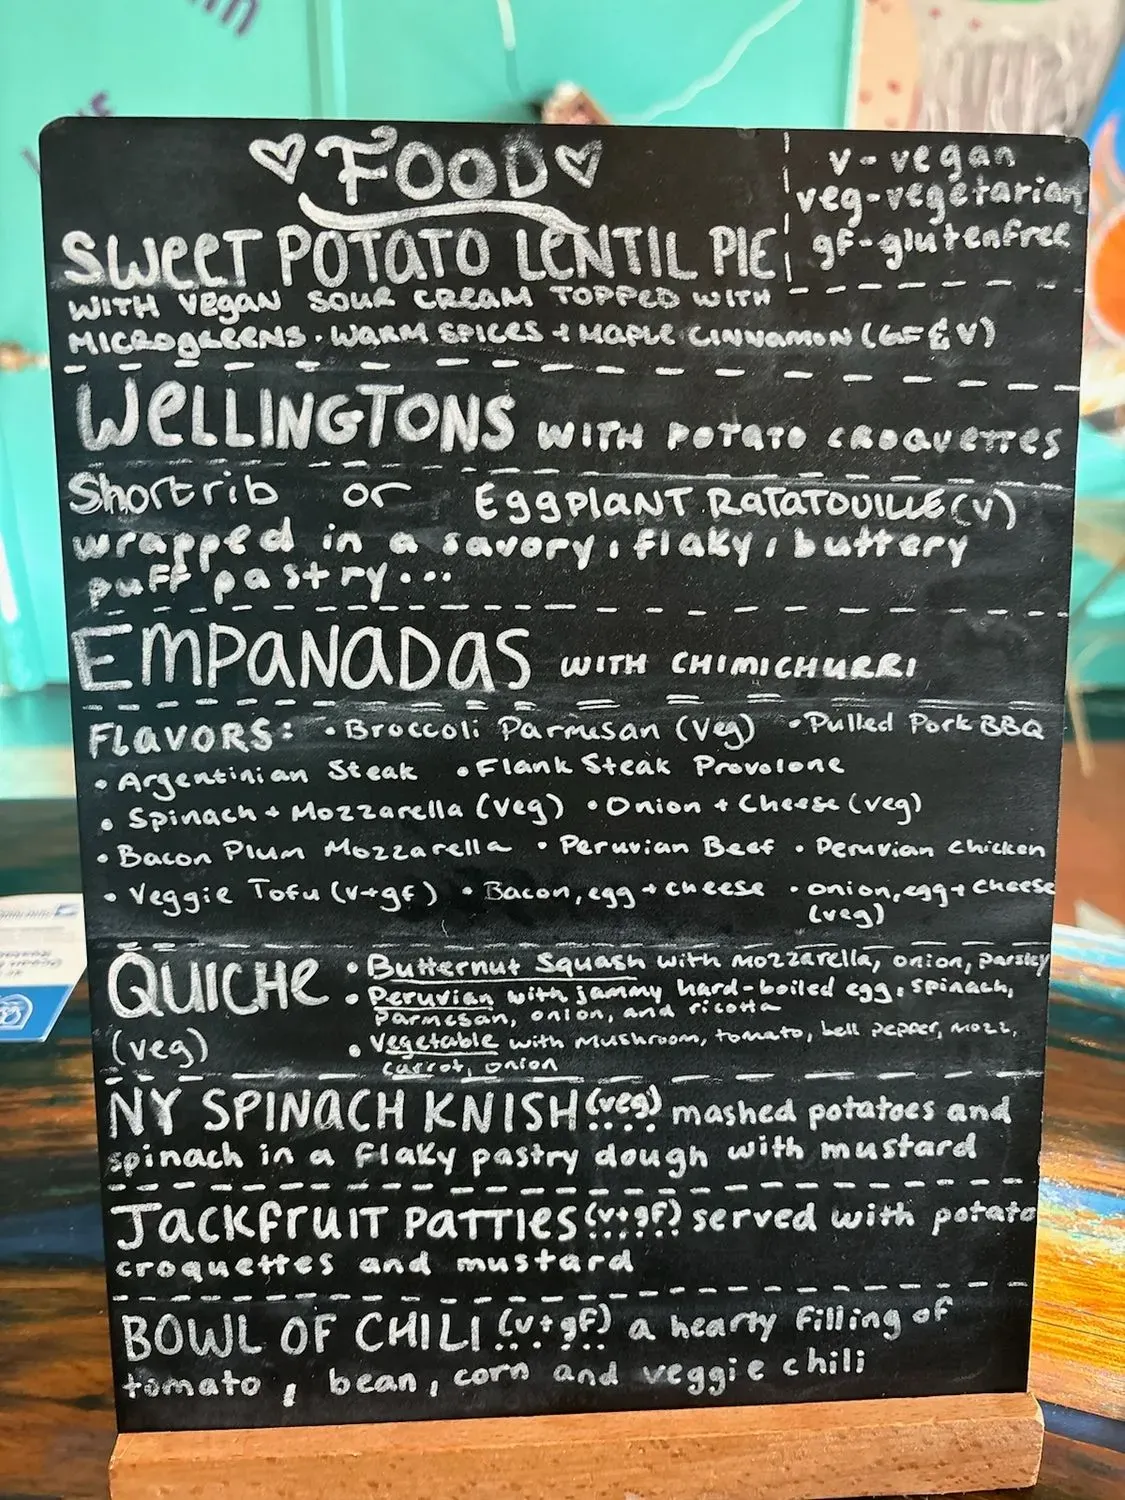 FOOD
v - vegan
veg-vegetarian
gf-glutenfree
SWEET POTATO LENTIL PIE
WITH VEGAN SOUR CREAM TOPPED WITH
MICROGREENS · WARM SPICES + MAPLE CINNAMON (GF & V)
WELLINGTONS WITH POTATO CROQUETTES
Shortrib or EGGPLANT RATATOUILLE (V)
wrapped in a savory, flaky, buttery
puff pastry...
EMPANADAS WITH CHIMICHURRI
FLAVORS: • Broccoli Parmesan (Veg) • Pulled Pork BBQ
• Argentinian Steak • Flank Steak Provolone
• Spinach + Mozzarella (Veg) • Onion + Cheese (veg)
• Bacon Plum Mozzarella • Peruvian Beef • Peruvian chicken
• Veggie Tofu (v+gf) • Bacon, egg + cheese • onion, egg + cheese
(veg)
QUICHE • Butternut Squash with mozzarella, onion, parsley
• Peruvian with jammy hard-boiled egg, spinach,
parmesan, onion, and ricotta
(veg) • Vegetable with mushroom, tomato, bell pepper, mozz,
carrot, onion
NY SPINACH KNISH (veg) mashed potatoes and
spinach in a flaky pastry dough with mustard
JACKFRUIT PATTIES (v+gf) served with potato
croquettes and mustard
BOWL OF CHILI (v+gf) a hearty filling of
tomato, bean, corn and veggie chili